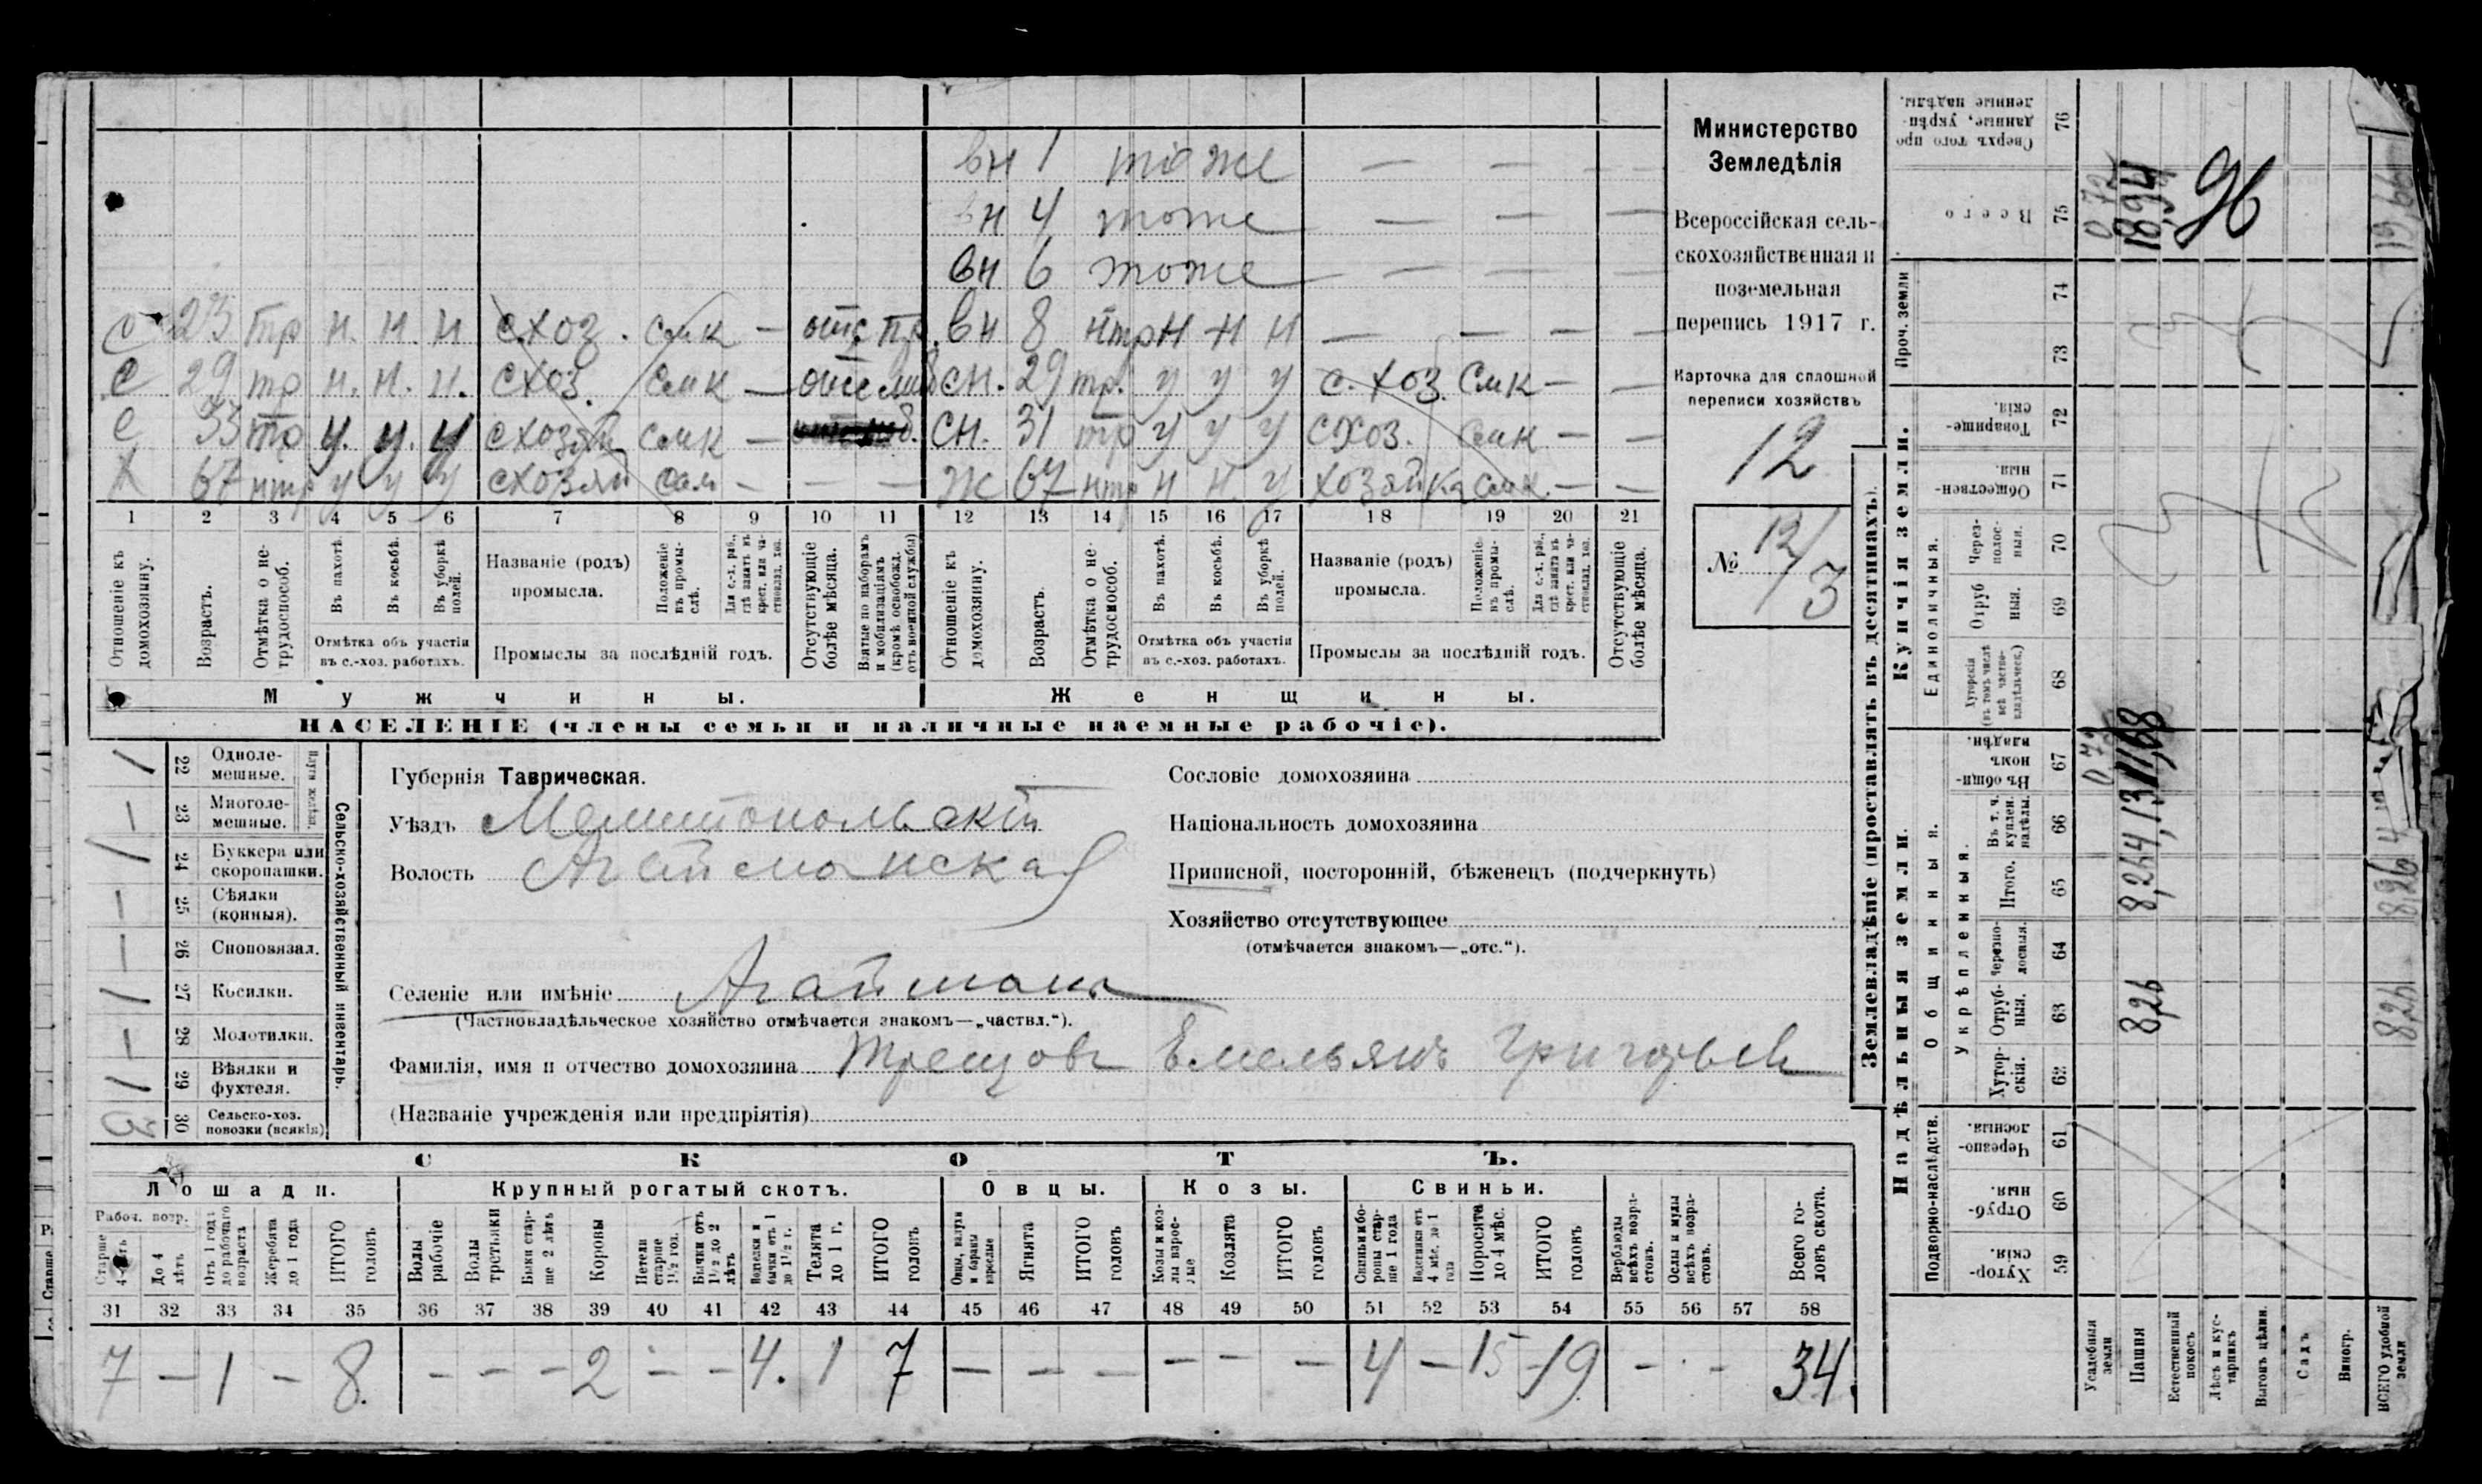 вн 1 тоже — — —
вн 4 тоже — — —
вн 6 тоже — — —
с 23 тр н. н. н схоз. смк — отс вн 8 нтр н н н — — — —
с 29 тр н. н. н. схоз. смк — отс сн. 29 тр. у у у с.хоз. смк — —
с 33 тр у. у. у смк — сн. 31 тр у у у схоз. смк — —
Х 67 нтр у у у сам — — — Ж 67 нтр н н. у хозяйка смк — —
1 2 3 4 5 6 7 8 9 10 11 12 13 14 15 16 17 18 19 20 21
Отношеніе къ домохозяину.
Возрастъ.
Отмѣтка о нетрудоспособ.
Въ пахотѣ.
Въ косьбѣ.
Въ уборкѣ полей.
Отмѣтка объ участіи въ с.-хоз. работахъ.
Названіе (родъ) промысла.
Положеніе въ промыслѣ.
Для с.-х. раб., гдѣ занятъ въ крест. или частновлад. хоз.
Промыслы за послѣдній годъ.
Отсутствующіе болѣе мѣсяца.
Взятые по наборамъ и мобилизаціямъ (кромѣ освобожд. отъ военной службы)
Отношеніе къ домохозяину.
Возрастъ.
Отмѣтка о нетрудоспособ.
Въ пахотѣ.
Въ косьбѣ.
Въ уборкѣ полей.
Отмѣтка объ участіи въ с.-хоз. работахъ.
Названіе (родъ) промысла.
Положеніе въ промыслѣ.
Для с.-х. раб., гдѣ занятъ въ крест. или частновлад. хоз.
Промыслы за послѣдній годъ.
Отсутствующіе болѣе мѣсяца.
Мужчины. Женщины.
НАСЕЛЕНІЕ (члены семьи и наличные наемные рабочіе).
Министерство
Земледѣлія
Всероссійская сель-
скохозяйственная и
поземельная
перепись 1917 г.
Карточка для сплошной
переписи хозяйствъ
12
№ 12/3
Сельско-хозяйственный инвентарь.
1 22 Однолемешные.
— 23 Многолемешные.
1 24 Буккера или скоропашки.
— 25 Сѣялки (конныя).
— 26 Сноповязал.
1 27 Косилки.
— 28 Молотилки.
1 29 Вѣялки и фухтеля.
3 30 Сельско-хоз. повозки (всякія)
Губернія Таврическая.
Уѣздъ Мелитопольскій
Волость Агайманская
Селеніе или имѣніе Агайманъ
(Частновладѣльческое хозяйство отмѣчается знакомъ—„частвл.“).
Фамилія, имя и отчество домохозяина Трещовъ Емельянъ Григорьев
(Названіе учрежденія или предпріятія)
Сословіе домохозяина
Національность домохозяина
Приписной, посторонній, бѣженецъ (подчеркнуть)
Хозяйство отсутствующее
(отмѣчается знакомъ—„отс.“).
СКОТЪ.
Лошади. Крупный рогатый скотъ. Овцы. Козы. Свиньи.
Рабоч. возр.
Старше 4 лѣтъ
До 4 лѣтъ
Отъ 1 года до рабочаго возраста
Жеребята до 1 года
ИТОГО головъ
Волы рабочіе
Волы третьяки
Быки старше 2 лѣтъ
Коровы
Нетели старше 1½ год.
Бычки отъ 1½ до 2 лѣтъ
Телки и бычки отъ 1 до 1½ г.
Телята до 1 г.
ИТОГО головъ
Овцы, валухи и бараны взрослые
Ягнята
ИТОГО головъ
Козы и козлы взрослые
Козлята
ИТОГО головъ
Свиньи и боровы старше 1 года
Подсвинки отъ 4 мѣс. до 1 года
Поросята до 4 мѣс.
ИТОГО головъ
Верблюды всѣхъ возрастовъ.
Ослы и мулы всѣхъ возрастовъ.
Всего головъ скота.
31 32 33 34 35 36 37 38 39 40 41 42 43 44 45 46 47 48 49 50 51 52 53 54 55 56 57 58
7 — 1 — 8. — — — 2 — — 4. 1 7 — — — — — — 4 — 15 19 — - — 34.
Землевладѣніе (проставлять въ десятинахъ).
Надѣльныя земли.
Купчія земли.
Проч. земли
Подворно-наслѣдств.
Общинныя.
Укрѣпленныя.
Единоличныя.
Хуторскія. 59
Отрубныя. 60
Черезполосныя. 61
Хуторскія. 62
Отрубныя. 63
Черезполосныя. 64
Итого. 65
Въ т. ч. куплен. надѣлы. 66
Въ общинномъ владѣн. 67
Хуторскія (въ томъ числѣ всѣ частновладѣльческ.) 68
Отрубныя. 69
Черезполосныя. 70
Общественныя. 71
Товарищескія. 72
73
74
Всего 75
Сверхъ того проданные, укрѣпленные надѣлы. 76
Усадебныя земли 0,72 0,72
Пашня 8,26 8,26 18,94
Естественный покосъ
Лѣсъ и кустарникъ
Выгонъ цѣлин.
Садъ
Виногр.
ВСЕГО удобной земли 8,26 8,26 19,66
96